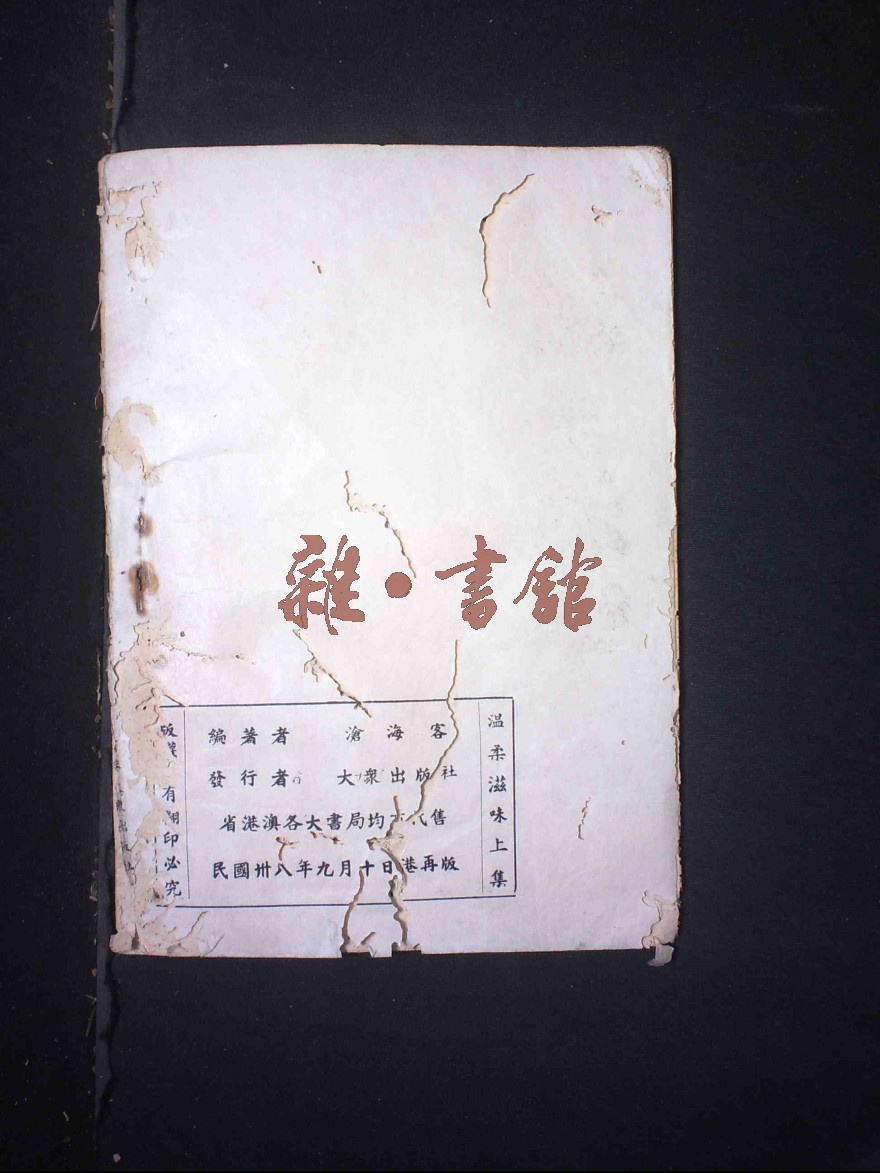 雜·書舘
溫柔滋味上集
編著者 滄海客
發行者 大衆出版社
省港澳各大書局均 代售
民國卅八年九月十日港再版
版 有 印必究